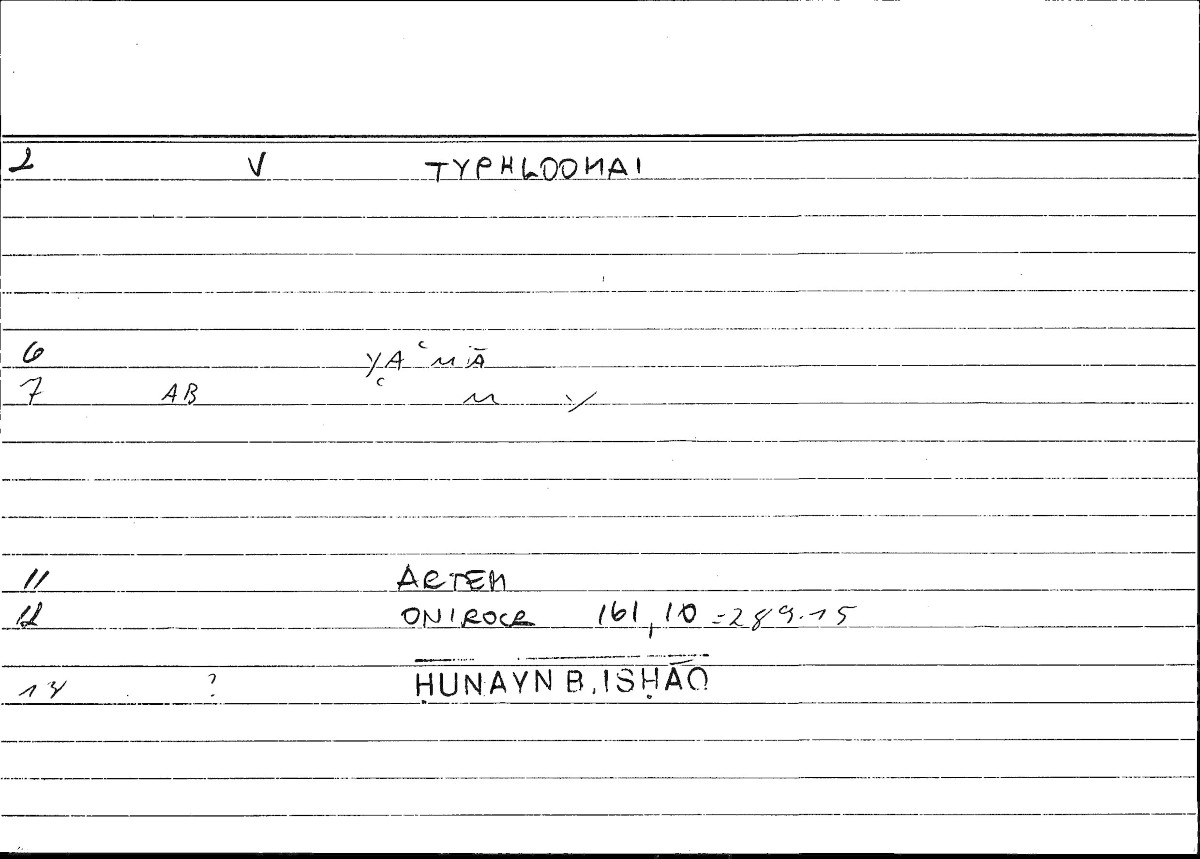 2 V TYPHLOOMAI
6 YAʿMĀ
7 AB ʿ M Y
11 ARTEM
12 ONIROCR 161,10 =289.15
14 ? ḤUNAYN B. ISḤĀQ